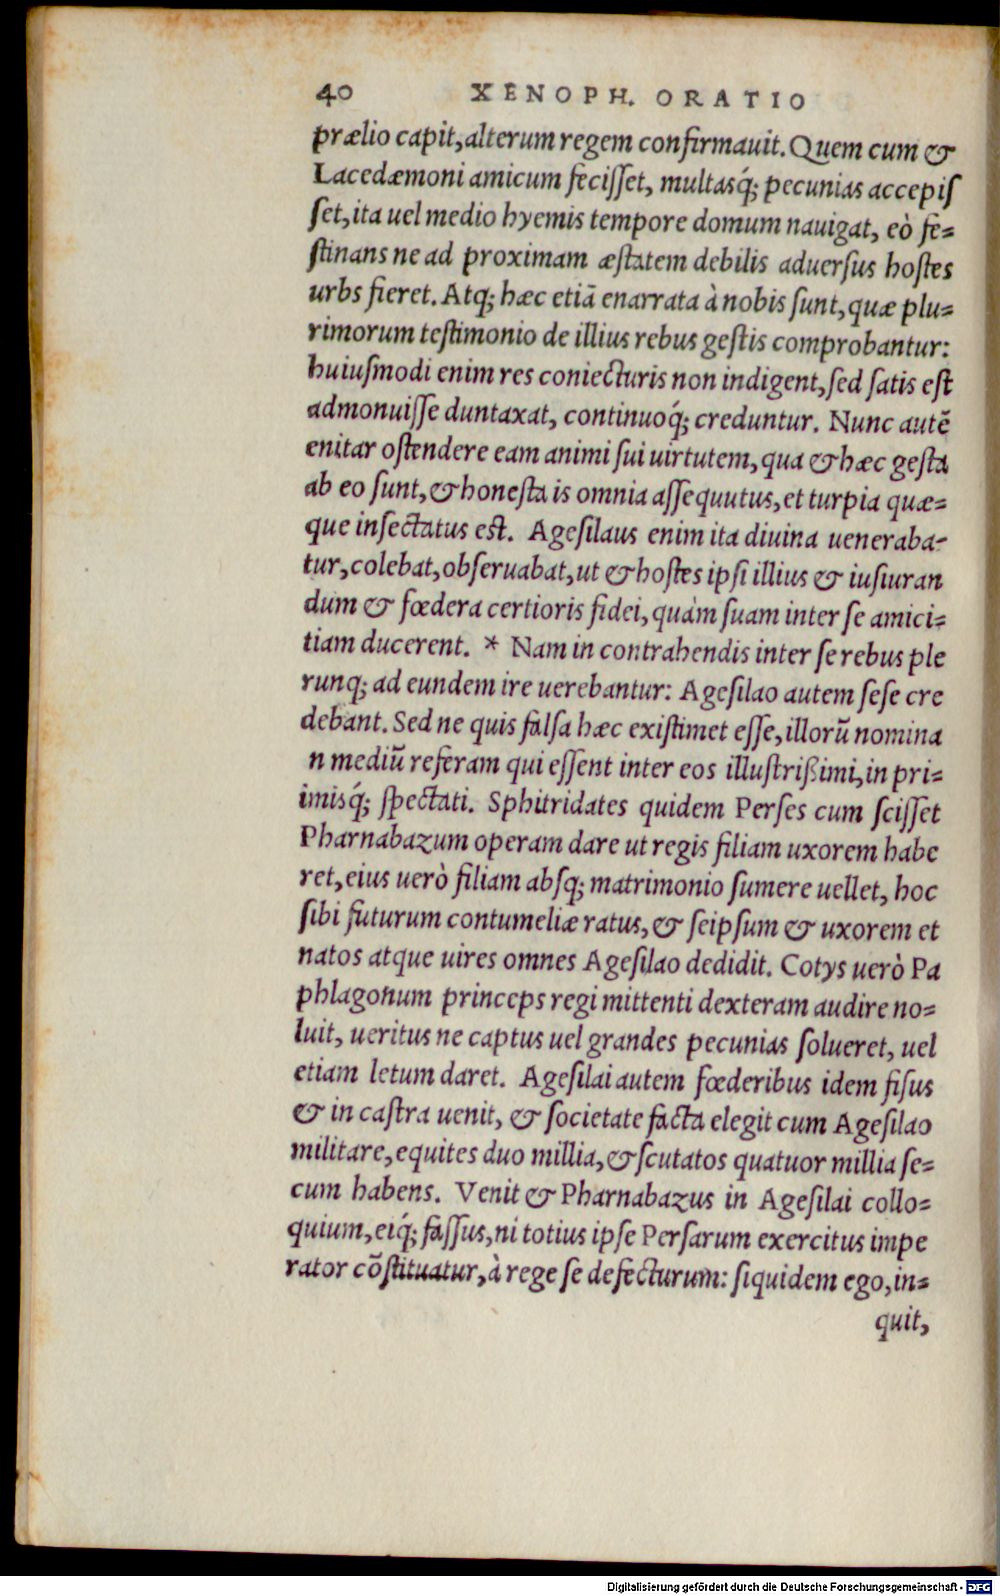 40 XENOPH. ORATIO
prælio capit, alterum regem confirmauit. Quem cum &
Lacedæmoni amicum feciſſet, multasq́; pecunias accepiſ
ſet, ita uel medio hyemis tempore domum nauigat, eò fe=
ſtinans ne ad proximam æſtatem debilis aduerſus hoſtes
urbs fieret. Atq; hæc etiã enarrata à nobis ſunt, quæ plu=
rimorum teſtimonio de illius rebus geſtis comprobantur:
huiuſmodi enim res coniecturis non indigent, ſed ſatis eſt
admonuiſſe duntaxat, continuoq́; creduntur. Nunc autẽ
enitar oſtendere eam animi ſui uirtutem, qua & hæc geſta
ab eo ſunt, & honeſta is omnia aſſequutus, et turpia quæ=
que inſectatus eſt. Ageſilaus enim ita diuina ueneraba-
tur, colebat, obſeruabat, ut & hoſtes ipſi illius & iuſiuran
dum & fœdera certioris fidei, quàm ſuam inter ſe amici=
tiam ducerent. * Nam in contrahendis inter ſe rebus ple
runq; ad eundem ire uerebantur: Ageſilao autem ſeſe cre
debant. Sed ne quis falſa hæc exiſtimet eſſe, illorũ nomina
n mediũ referam qui eſſent inter eos illuſtrißimi, in pri=
imisq́; ſpectati. Sphitridates quidem Perſes cum ſciſſet
Pharnabazum operam dare ut regis filiam uxorem habe
ret, eius uerò filiam abſq; matrimonio ſumere uellet, hoc
ſibi futurum contumeliæ ratus, & ſeipſum & uxorem et
natos atque uires omnes Ageſilao dedidit. Cotys uerò Pa
phlagonum princeps regi mittenti dexteram audire no=
luit, ueritus ne captus uel grandes pecunias ſolueret, uel
etiam letum daret. Ageſilai autem fœderibus idem fiſus
& in caſtra uenit, & ſocietate facta elegit cum Ageſilao
militare, equites duo millia, & ſcutatos quatuor millia ſe=
cum habens. Venit & Pharnabazus in Ageſilai collo=
quium, eiq́; faſſus, ni totius ipſe Perſarum exercitus impe
rator cõſtituatur, à rege ſe defecturum: ſiquidem ego, in=
quit,
Digitalisierung gefördert durch die Deutsche Forschungsgemeinschaft - DFG